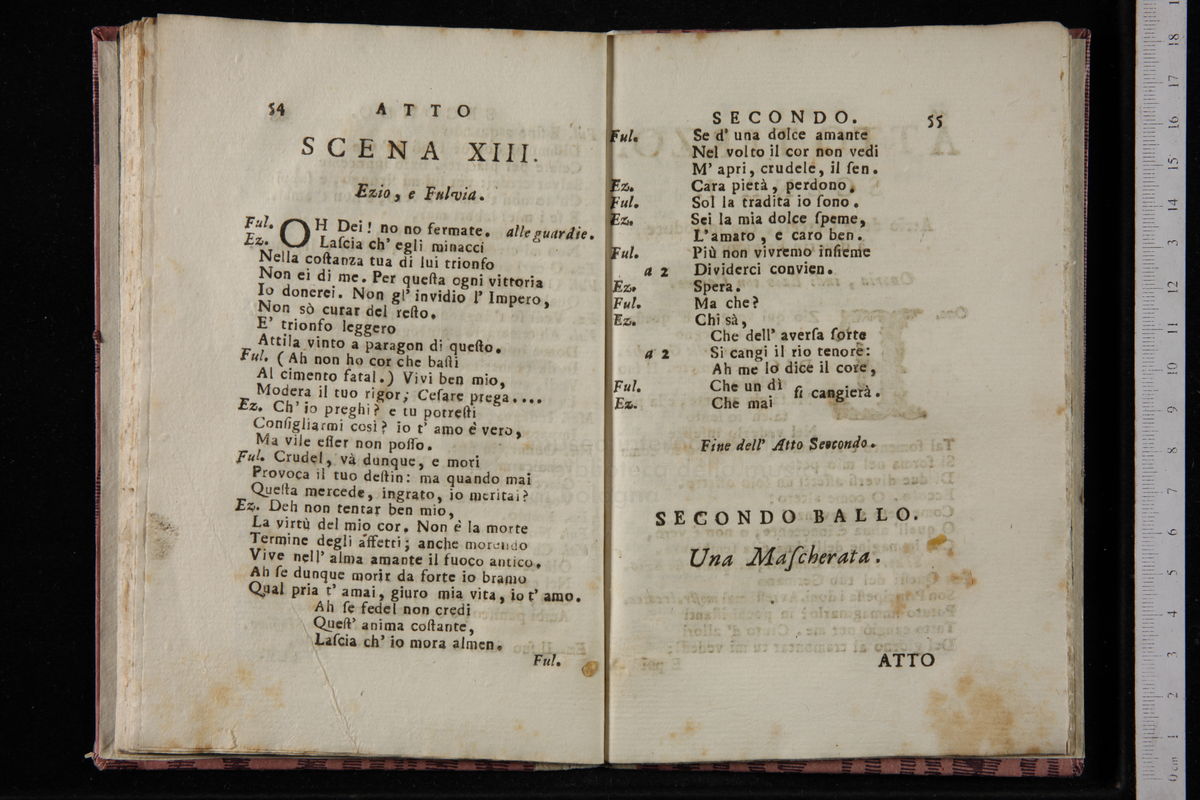 54 ATTO
SCENA XIII.
Ezio, e Fulvia.
Ful. OH Dei! no no fermate. alle guardie.
Ez. Laſcia ch' egli minacci
Nella coſtanza tua di lui trionfo
Non ei di me. Per queſta ogni vittoria
Io donerei. Non gl' invidio l' Impero,
Non sò curar del reſto.
E' trionfo leggero
Attila vinto a paragon di queſto.
Ful. (Ah non ho cor che baſti
Al cimento fatal.) Vivi ben mio,
Modera il tuo rigor; Ceſare prega....
Ez. Ch' io preghi? e tu potreſti
Conſigliarmi così? io t' amo è vero,
Ma vile eſſer non poſſo.
Ful. Crudel, và dunque, e mori
Provoca il tuo deſtin: ma quando mai
Queſta mercede, ingrato, io meritai?
Ez. Deh non tentar ben mio,
La virtù del mio cor. Non è la morte
Termine degli affetti; anche morendo
Vive nell' alma amante il fuoco antico.
Ah ſe dunque morir da forte io bramo
Qual pria t' amai, giuro mia vita, io t' amo.
Ah ſe fedel non credi
Queſt' anima coſtante,
Laſcia ch' io mora almen.
Ful.
SECONDO. 55
Ful. Se d' una dolce amante
Nel volto il cor non vedi
M' apri, crudele, il ſen.
Ez. Cara pietà, perdono.
Ful. Sol la tradita io ſono.
Ez. Sei la mia dolce ſpeme,
L'amato, e caro ben.
Ful. Più non vivremo inſieme
a 2 Dividerci convien.
Ez. Spera.
Ful. Ma che?
Ez. Chi sà,
Che dell' averſa ſorte
a 2 Si cangi il rio tenore:
Ah me lo dice il core,
Ful. Che un dì
ſi cangierà.
Ez. Che mai
Fine dell' Atto Secondo.
SECONDO BALLO.
Una Maſcherata.
ATTO